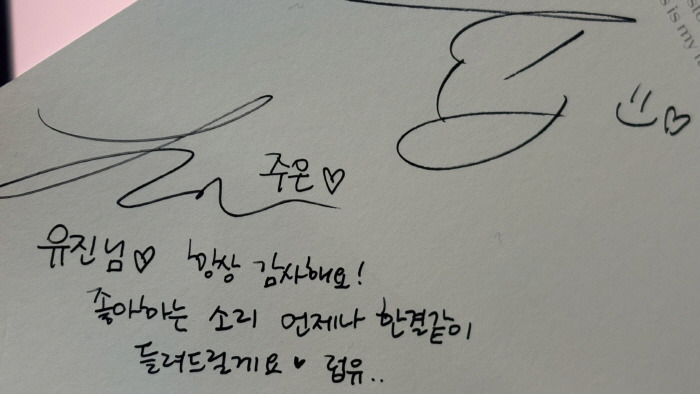 s is my
주은♡
유진님♡ 항상 감사해요!
좋아하는 소리 언제나 한결같이
들려드릴게요♥ 럽유..